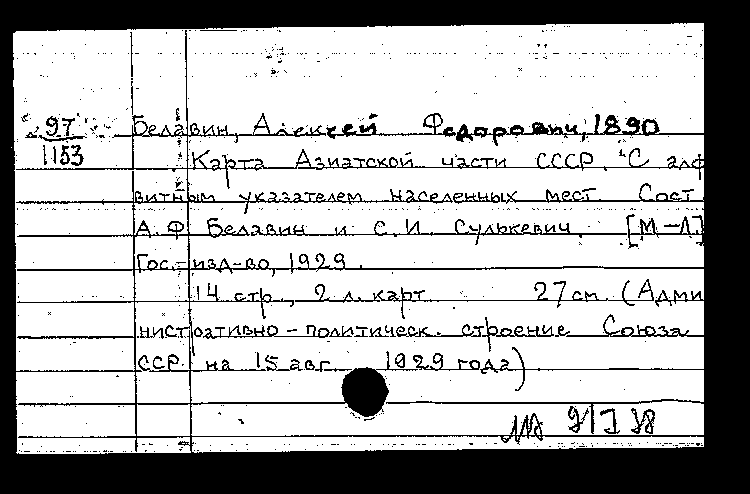 97 Белавин, Алексей Федорович, 1890
1153 Карта Азиатской части СССР. С алф
витным указателем населенных мест. Сост.
А.Ф Белавин и С.И. Сулькевич. [М-Л.]
Гос.-изд-во, 1929.
14 стр., 2 л. карт 27 см. (Адми
нистративно-политическ. строение Союза
ССР на 15 авг. 1929 года)